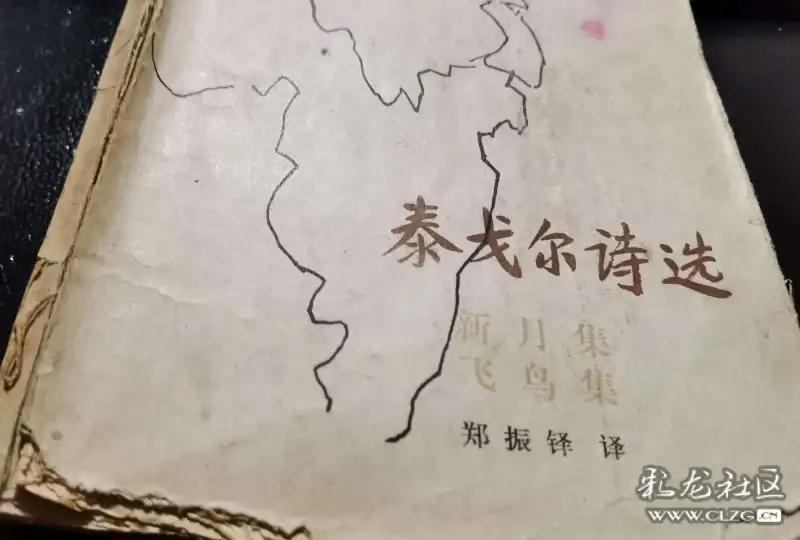 泰戈尔诗选
新月集
飞鸟集
郑振铎 译
彩龙社区
WWW.CLZG.CN